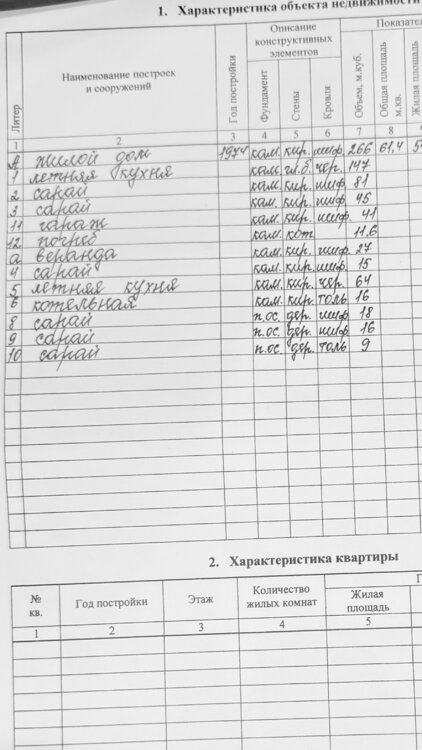 1. Характеристика объекта недвижимости
Литер | Наименование построек и сооружений | Год постройки | Описание конструктивных элементов | Показател
Фундамент | Стены | Кровля | Объем, м.куб. | Общая площадь м.кв. | Жилая площадь
1 2 3 4 5 6 7 8
А жилой дом 1974 кам. кир. шиф. 266 61,4
1 летняя кухня кам. гл.б. чер. 147
2 сарай кам. кир. шиф. 81
3 сарай кам. кир. шиф. 45
11 гараж кам. кир. шиф. 41
12 погреб кам. кот. 11.6
а веранда кам. кир. шиф. 27
4 сарай кам. кир. шиф. 15
5 летняя кухня кам. кир. чер. 64
6 котельная кам. кир. толь 16
8 сарай п.ос. дер. шиф. 18
9 сарай п.ос. дер. шиф. 16
10 сарай п.ос. дер. толь 9
2. Характеристика квартиры
№ кв. | Год постройки | Этаж | Количество жилых комнат | Жилая площадь
1 2 3 4 5